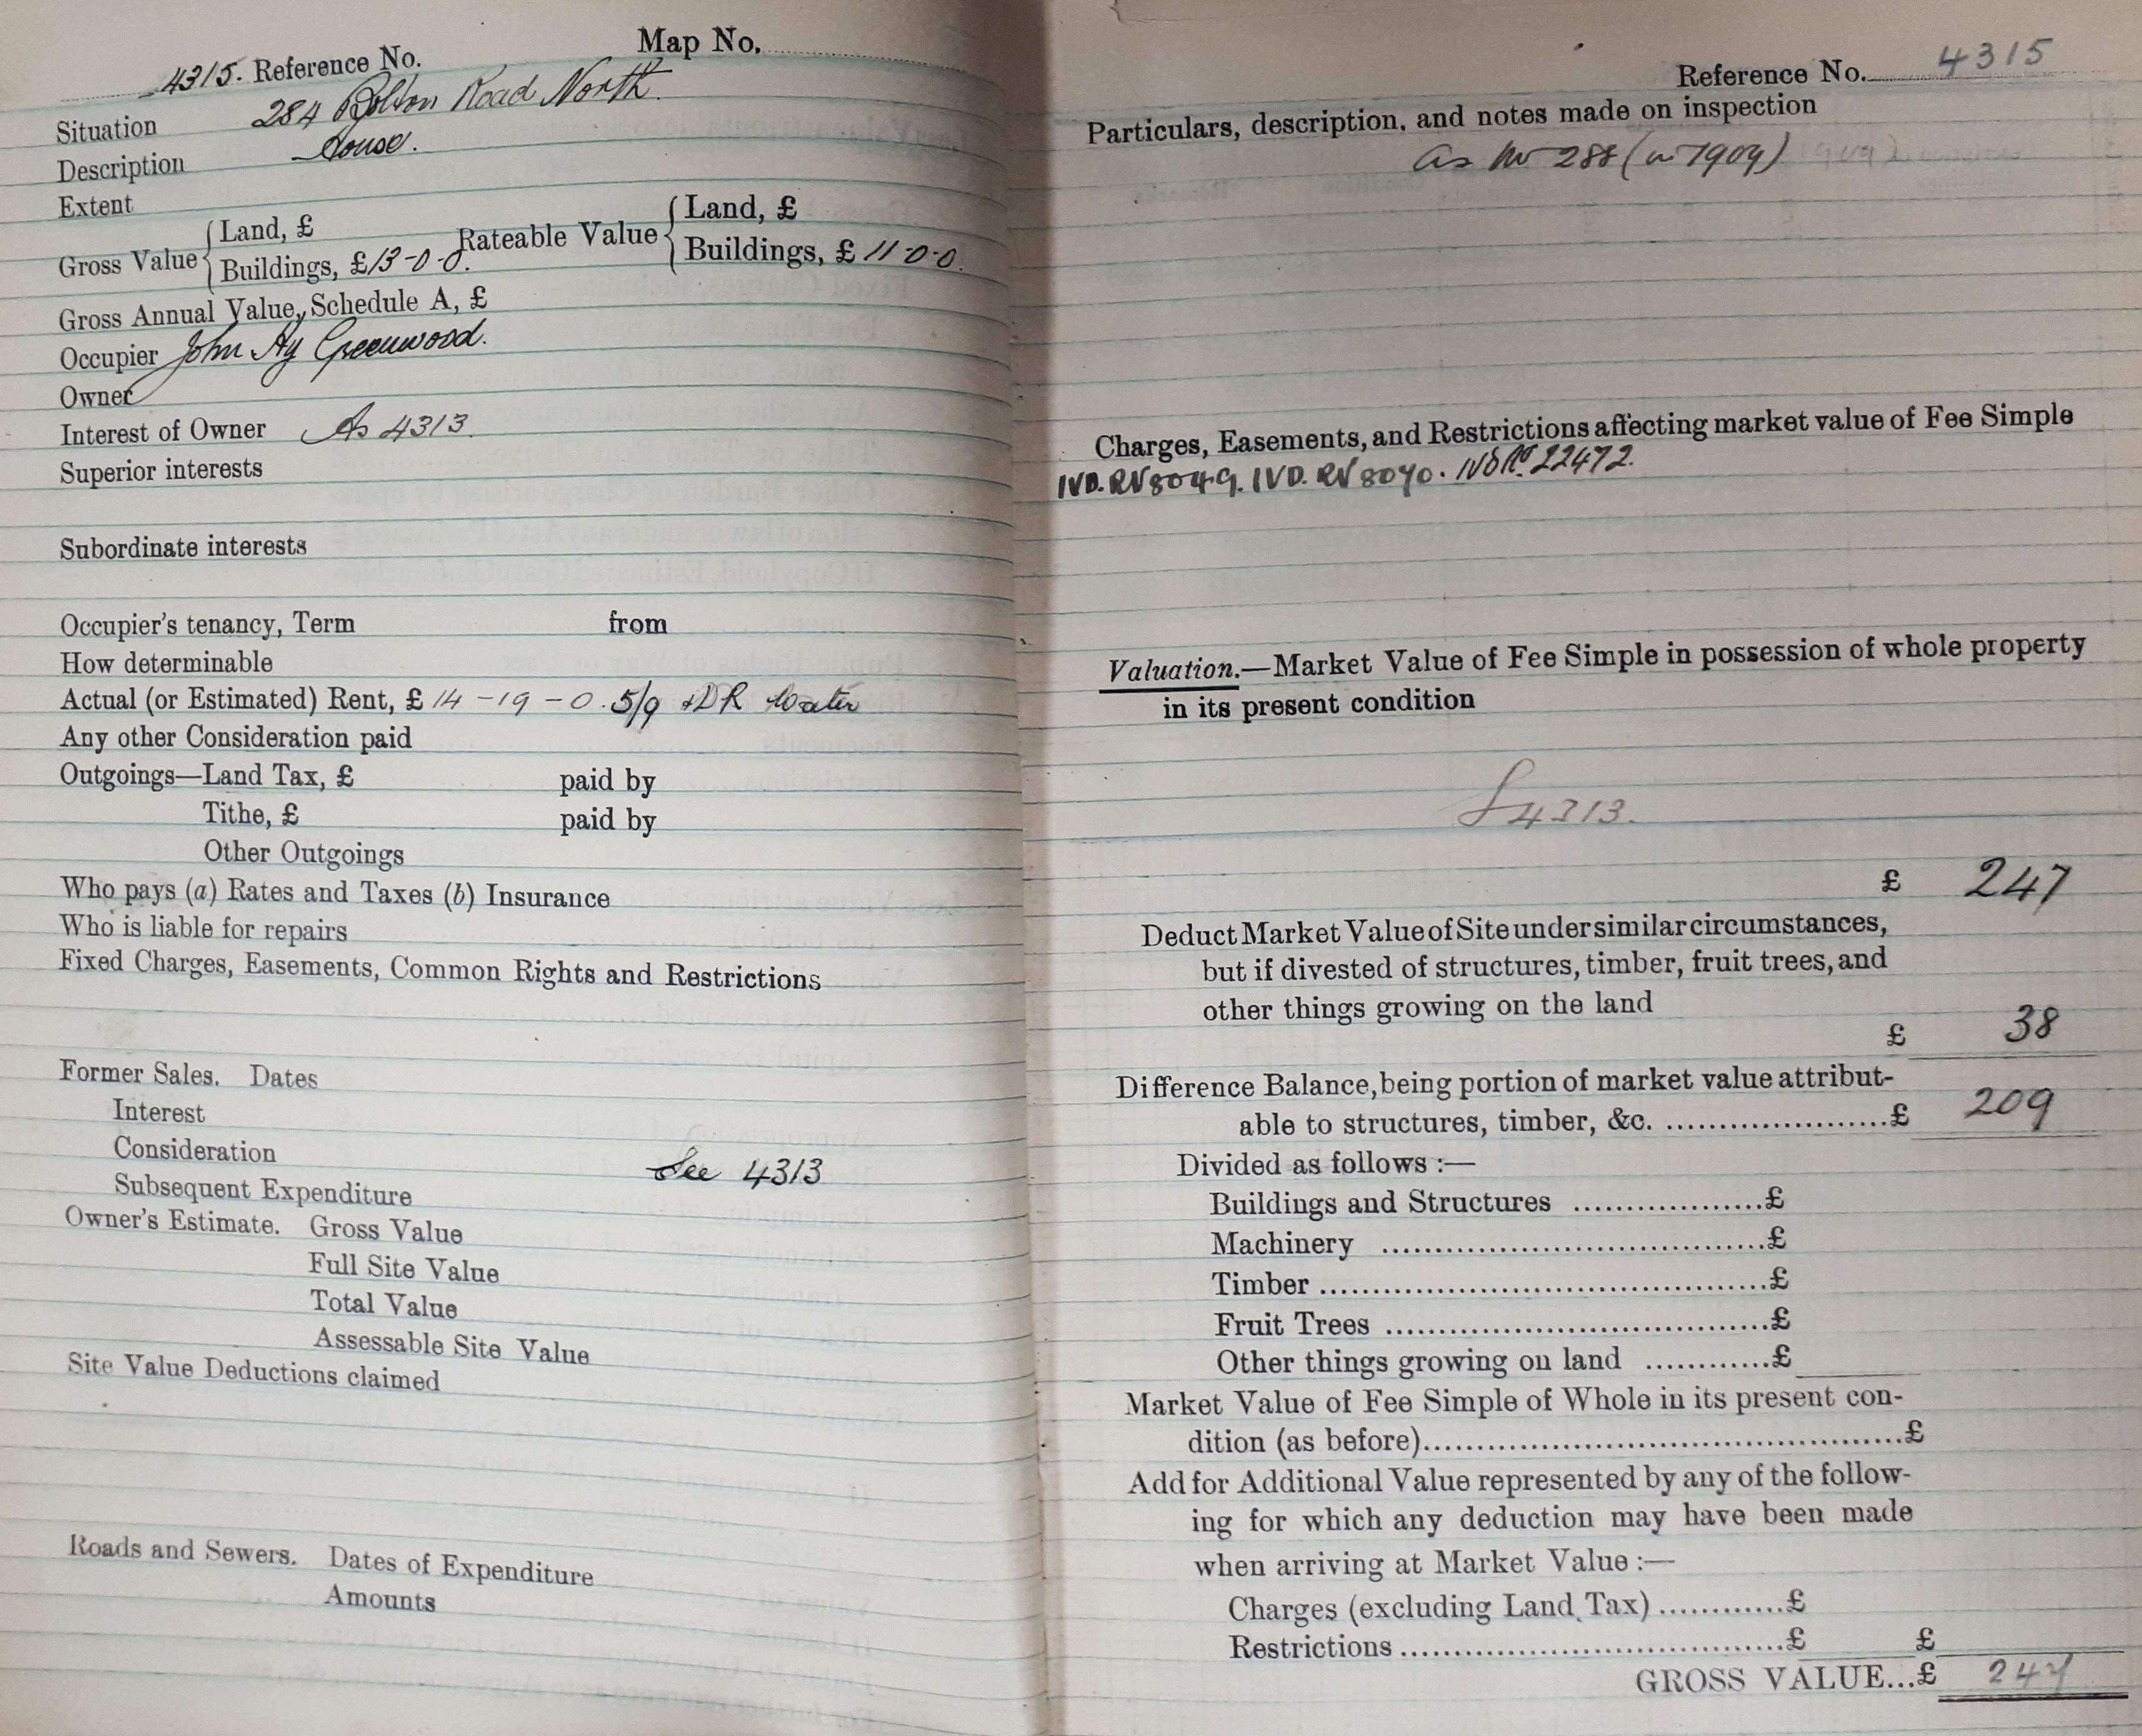 Map No.
4315. Reference No.
Situation 284 Bolton Road North.
Description House.
Extent
Gross Value { Land, £ Rateable Value { Land, £
Buildings, £ 13-0-0. Buildings, £ 11-0-0.
Gross Annual Value, Schedule A, £
Occupier John Hy Greenwood.
Owner
Interest of Owner As 4313.
Superior interests
Subordinate interests
Occupier's tenancy, Term from
How determinable
Actual (or Estimated) Rent, £ 14-19-0. 5/9 +DR Water
Any other Consideration paid
Outgoings—Land Tax, £ paid by
Tithe, £ paid by
Other Outgoings
Who pays (a) Rates and Taxes (b) Insurance
Who is liable for repairs
Fixed Charges, Easements, Common Rights and Restrictions
Former Sales. Dates
Interest
Consideration
See 4313
Subsequent Expenditure
Owner's Estimate. Gross Value
Full Site Value
Total Value
Assessable Site Value
Site Value Deductions claimed
Roads and Sewers. Dates of Expenditure
Amounts
Reference No. 4315
Particulars, description, and notes made on inspection
as No 288 (in 1909)
Charges, Easements, and Restrictions affecting market value of Fee Simple
IVD. RV 8049. IVD. RV 8070. 22472.
Valuation.—Market Value of Fee Simple in possession of whole property
in its present condition
4313.
£ 247
Deduct Market Value of Site under similar circumstances,
but if divested of structures, timber, fruit trees, and
other things growing on the land
£ 38
Difference Balance, being portion of market value attribut-
able to structures, timber, &c. ......................£ 209
Divided as follows :—
Buildings and Structures ...................£
Machinery ......................................£
Timber .............................................£
Fruit Trees ......................................£
Other things growing on land ............£
Market Value of Fee Simple of Whole in its present con-
dition (as before)................................................£
Add for Additional Value represented by any of the follow-
ing for which any deduction may have been made
when arriving at Market Value :—
Charges (excluding Land Tax) ............£
Restrictions ......................................£ £
GROSS VALUE...£ 247